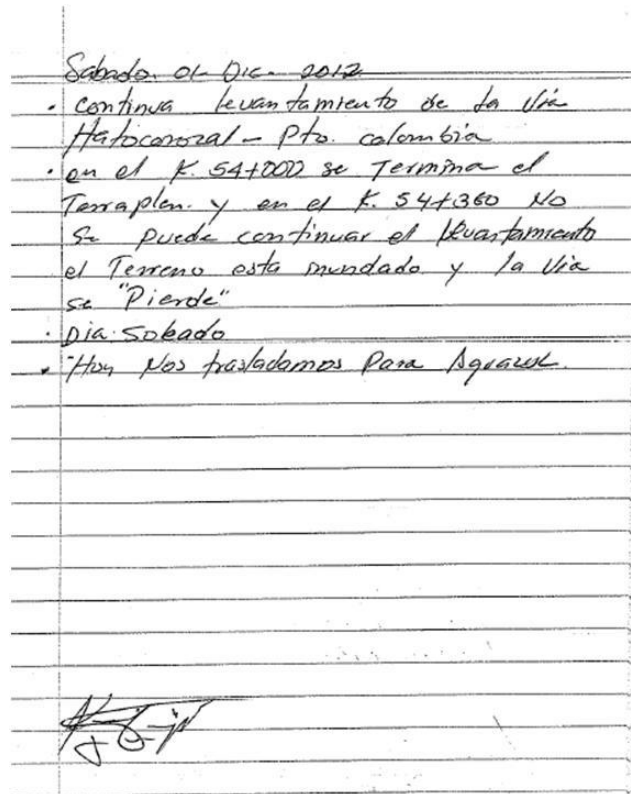 Sabado. 01 Dic. 2012
· continua levantamiento de la Via
Hatocorozal - Pto. colombia
· en el K. 54+000 se Termina el
Terraplen. y en el K. 54+360 No
Se puede continuar el levantamiento
el Terreno esta inundado y la Via
se "Pierde"
· Dia. Soleado
· Hoy Nos trasladamos Para Aguazul.